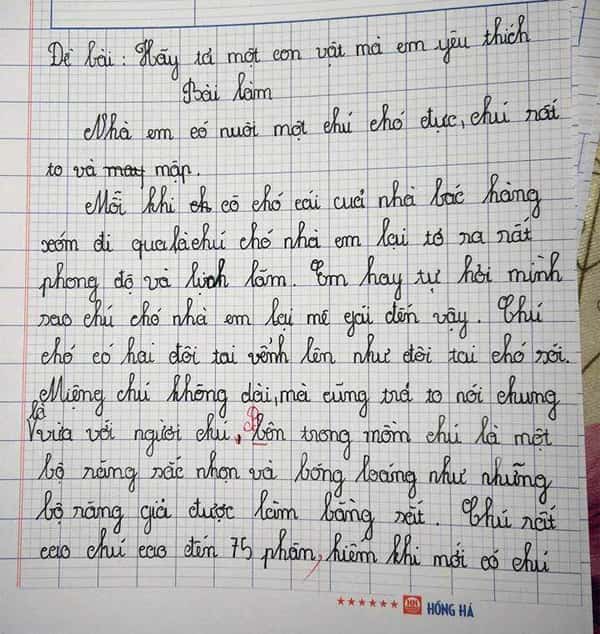 Đề bài: Hãy tả một con vật mà em yêu thích
Bài làm
Nhà em có nuôi một chú chó đực, chú rất
to và may mập.
Mỗi khi ch cô chó cái của nhà bác hàng
xóm đi qua là chú chó nhà em lại tỏ ra rất
phong độ và lịch lãm. Em hay tự hỏi mình
sao chú chó nhà em lại mê gái đến vậy. Chú
chó có hai đôi tai vểnh lên như đôi tai chó sói.
Miệng chú không dài, mà cũng trả to nói chung
là
vừa với người chú, bên trong mồm chú là một
B
bộ răng sắc nhọn và bóng loáng như những
bộ răng giả được làm bằng sắt. Chú rất
cao chú cao đến 75 phân, hiếm khi mới có chú
★★★★★★ HH HỒNG HÀ